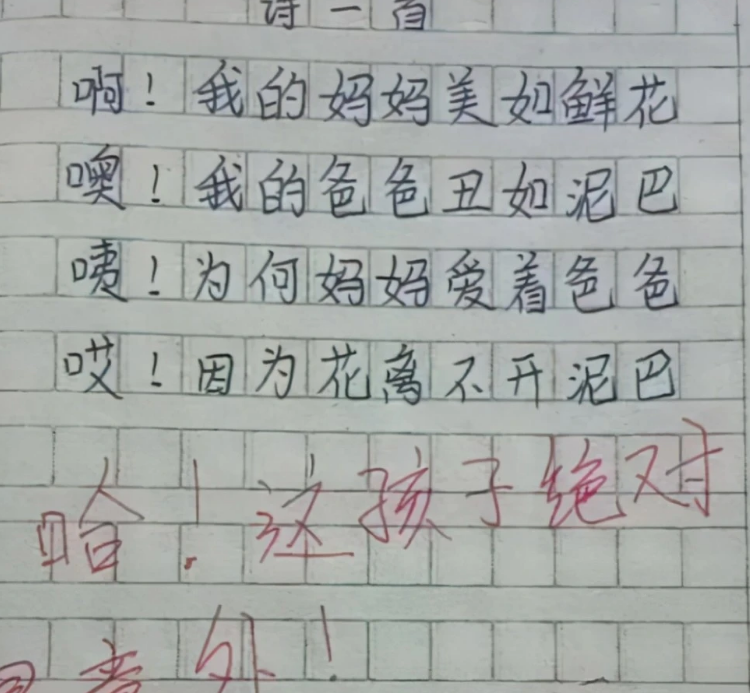 诗一首
啊！我的妈妈美如鲜花
噢！我的爸爸丑如泥巴
咦！为何妈妈爱着爸爸
哎！因为花离不开泥巴
哈！这孩子绝对
是意外！